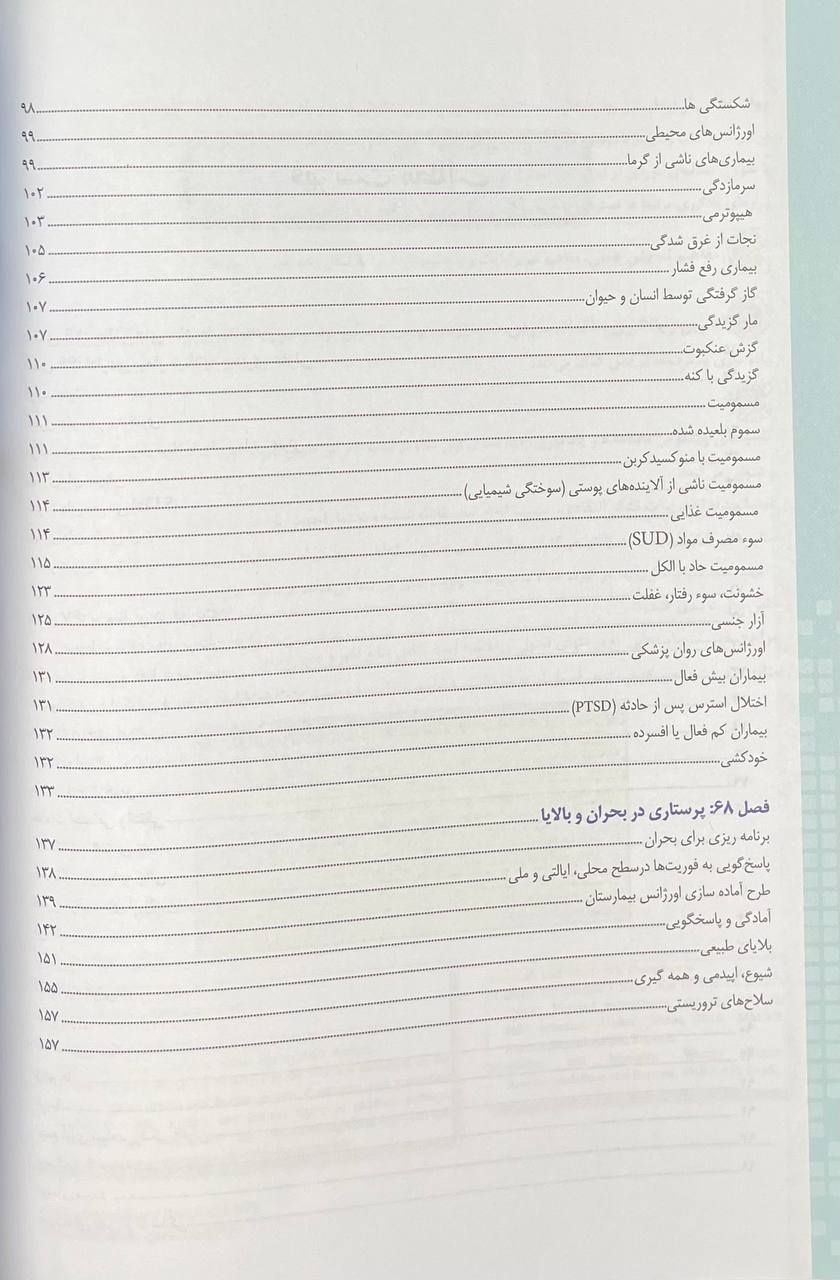 شکستگی ها ۹۸
اورژانس‌های محیطی ۹۹
بیماری‌های ناشی از گرما ۹۹
سرمازدگی ۱۰۲
هیپوترمی ۱۰۳
نجات از غرق شدگی ۱۰۵
بیماری رفع فشار ۱۰۶
گاز گرفتگی توسط انسان و حیوان ۱۰۷
مار گزیدگی ۱۰۷
گزش عنکبوت ۱۱۰
گزیدگی با کنه ۱۱۰
مسمومیت ۱۱۱
سموم بلعیده شده ۱۱۱
مسمومیت با منوکسیدکربن ۱۱۳
مسمومیت ناشی از آلاینده‌های پوستی (سوختگی شیمیایی) ۱۱۴
مسمومیت غذایی ۱۱۴
سوء مصرف مواد (SUD) ۱۱۵
مسمومیت حاد با الکل ۱۲۳
خشونت، سوء رفتار، غفلت ۱۲۵
آزار جنسی ۱۲۸
اورژانس‌های روان پزشکی ۱۳۱
بیماران بیش فعال ۱۳۱
اختلال استرس پس از حادثه (PTSD) ۱۳۲
بیماران کم فعال یا افسرده ۱۳۲
خودکشی ۱۳۳
فصل ۶۸: پرستاری در بحران و بالایا ۱۳۷
برنامه ریزی برای بحران ۱۳۸
پاسخ‌گویی به فوریت‌ها درسطح محلی، ایالتی و ملی ۱۳۹
طرح آماده سازی اورژانس بیمارستان ۱۴۲
آمادگی و پاسخگویی ۱۵۱
بلایای طبیعی ۱۵۵
شیوع، اپیدمی و همه گیری ۱۵۷
سلاح‌های تروریستی ۱۵۷